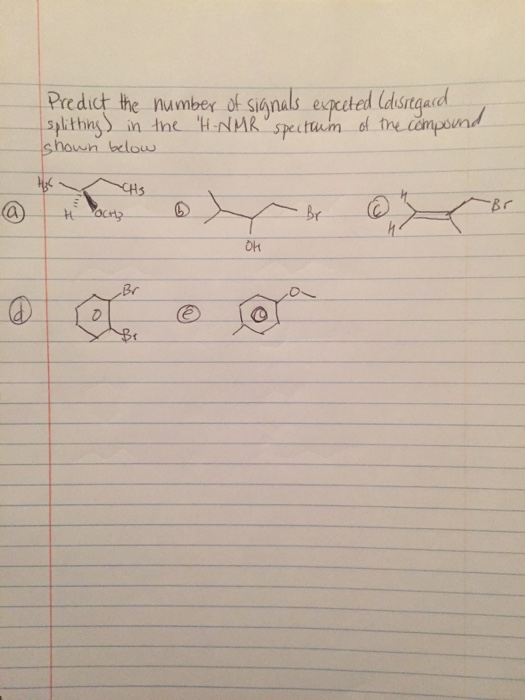 Predict the number of signals expected (disregard
splitting) in the 'H-NMR spectrum of the compound
shown below
H3C CH3
(a) H OCH3 (b) OH Br (c) H H Br
(d) Br Br (e) O